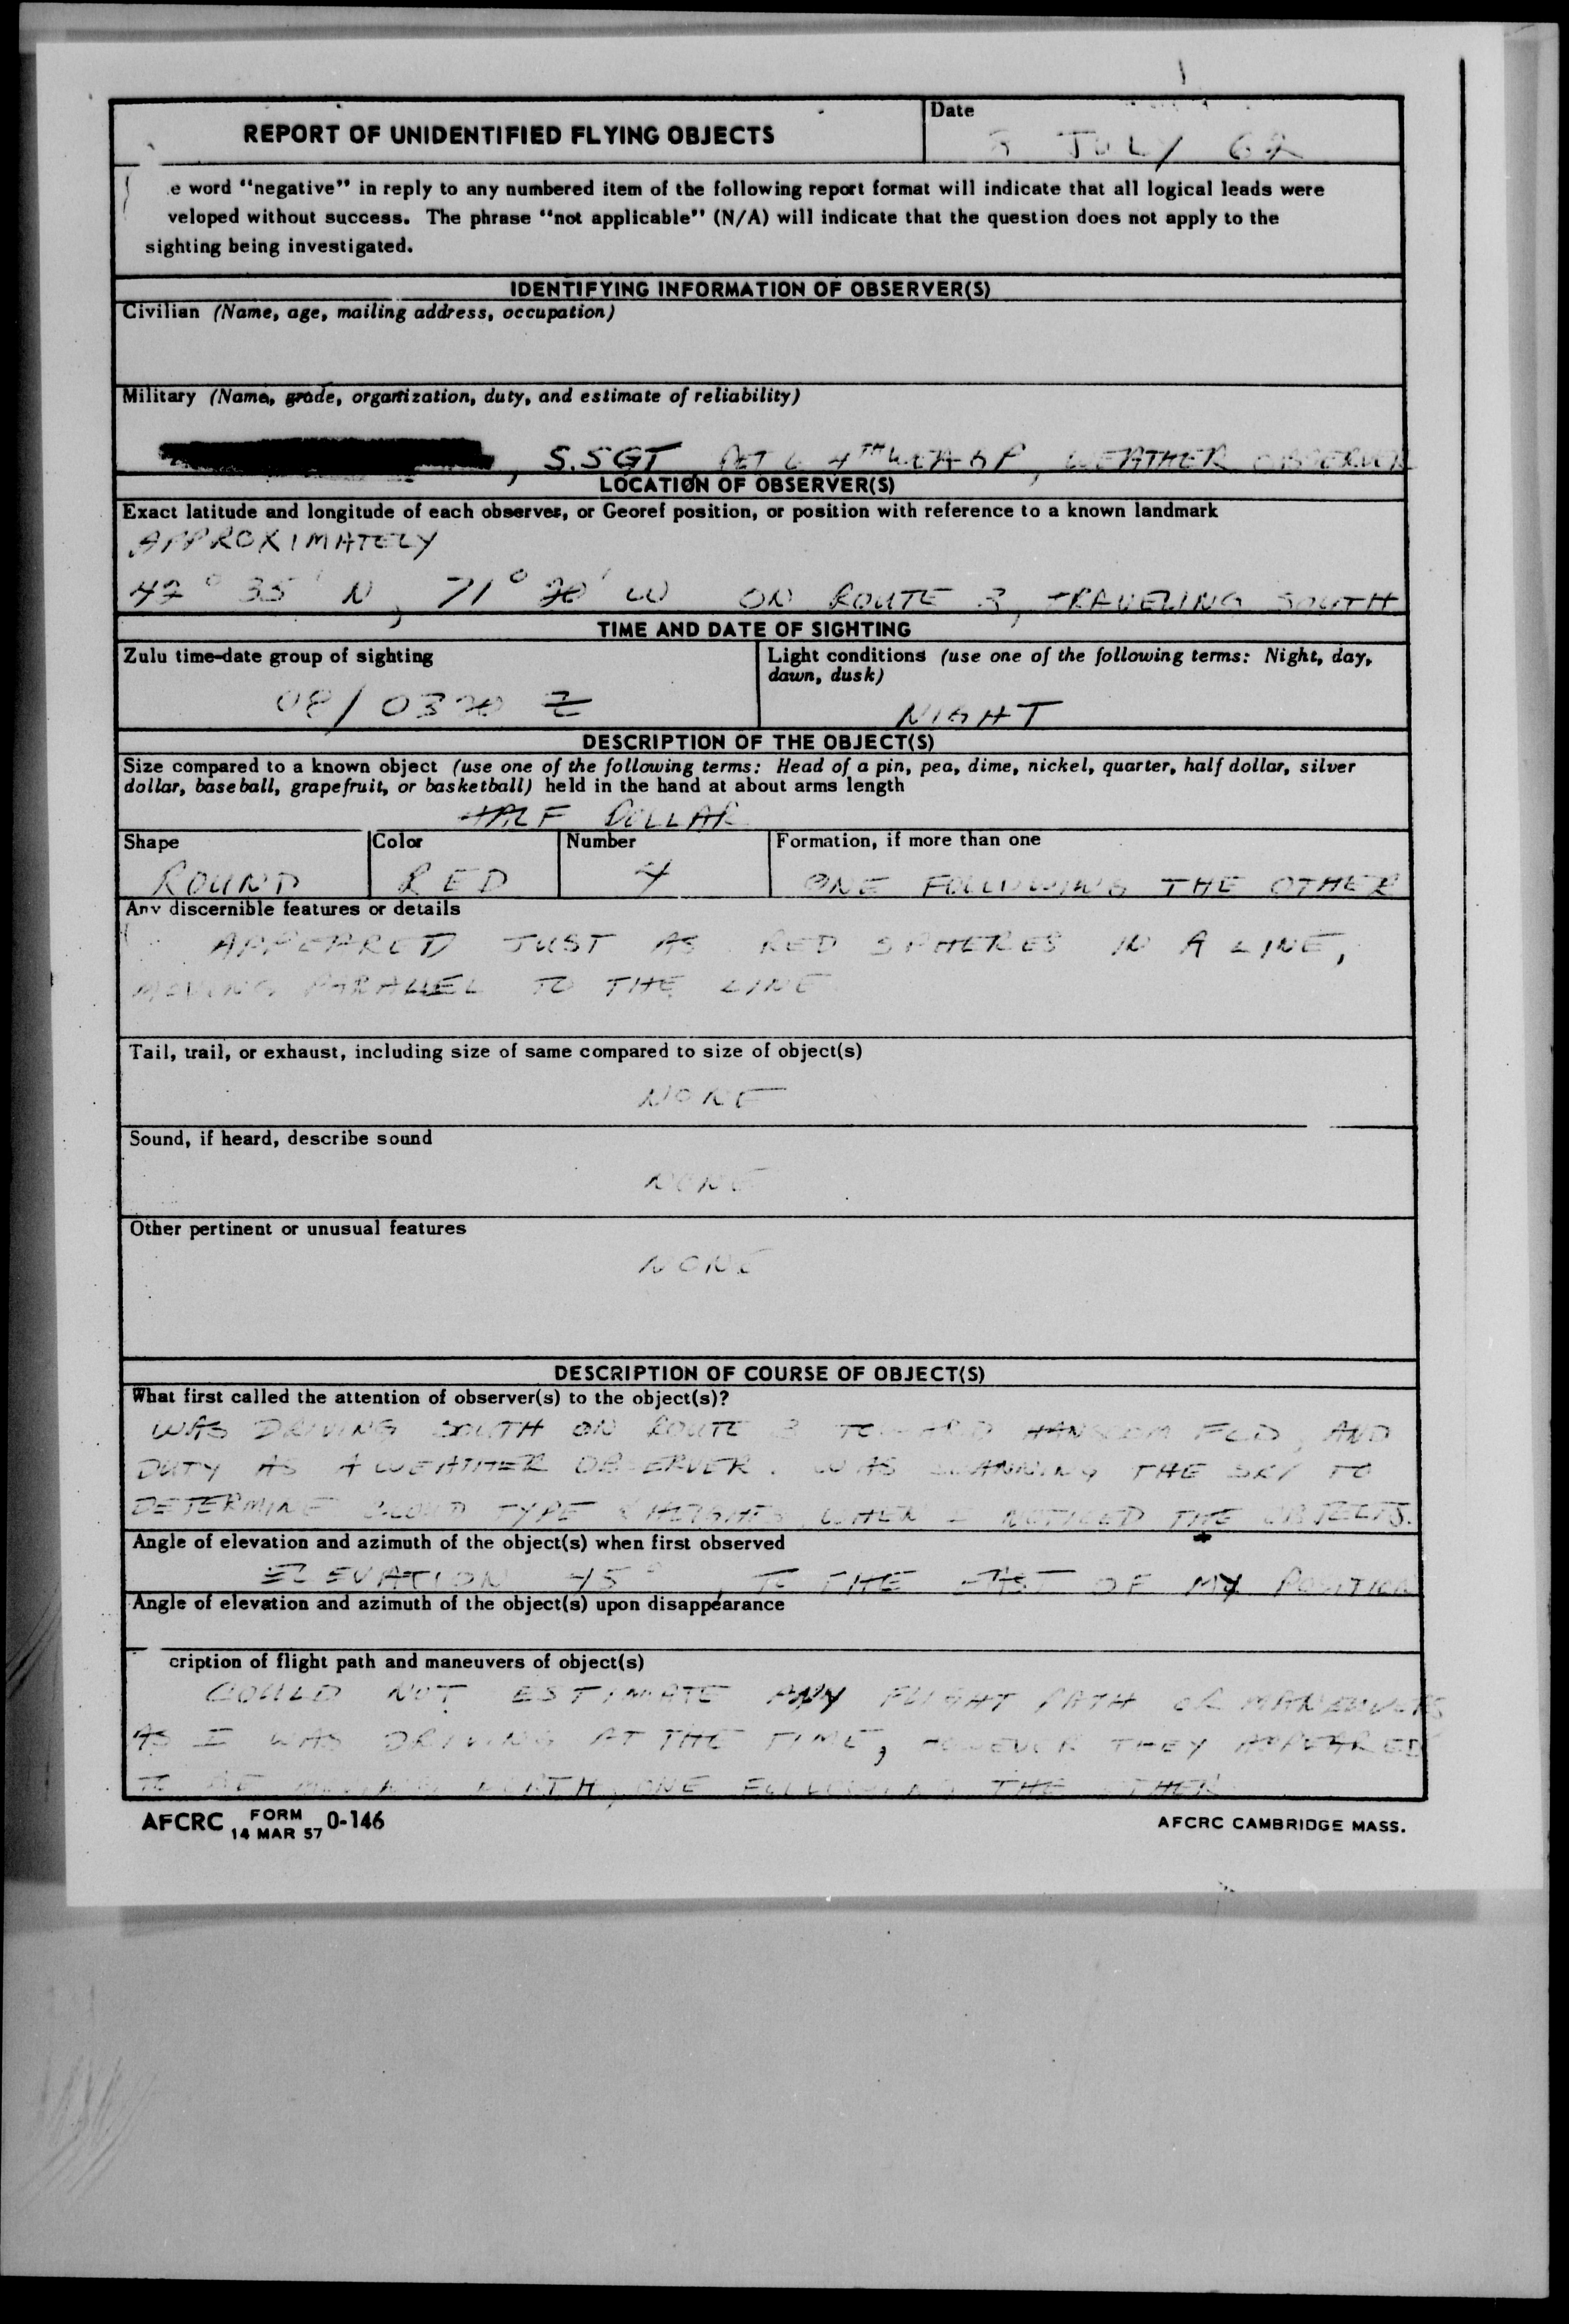 REPORT OF UNIDENTIFIED FLYING OBJECTS
Date
JULY 62
e word "negative" in reply to any numbered item of the following report format will indicate that all logical leads were
veloped without success. The phrase "not applicable" (N/A) will indicate that the question does not apply to the
sighting being investigated.
IDENTIFYING INFORMATION OF OBSERVER(S)
Civilian (Name, age, mailing address, occupation)
Military (Name, grade, organization, duty, and estimate of reliability)
, S.SGT DET 6 4TH WEA GP, WEATHER OBSERVER
LOCATION OF OBSERVER(S)
Exact latitude and longitude of each observer, or Georef position, or position with reference to a known landmark
APPROXIMATELY
42° 35' N, 71° 20' W ON ROUTE 3, TRAVELING SOUTH
TIME AND DATE OF SIGHTING
Zulu time-date group of sighting
08/0320 Z
Light conditions (use one of the following terms: Night, day,
dawn, dusk)
NIGHT
DESCRIPTION OF THE OBJECT(S)
Size compared to a known object (use one of the following terms: Head of a pin, pea, dime, nickel, quarter, half dollar, silver
dollar, baseball, grapefruit, or basketball) held in the hand at about arms length
HALF DOLLAR
Shape
ROUND
Color
RED
Number
4
Formation, if more than one
ONE FOLLOWING THE OTHER
Any discernible features or details
APPEARED JUST AS RED SPHERES IN A LINE,
MOVING PARALLEL TO THE LINE
Tail, trail, or exhaust, including size of same compared to size of object(s)
NONE
Sound, if heard, describe sound
NONE
Other pertinent or unusual features
NONE
DESCRIPTION OF COURSE OF OBJECT(S)
What first called the attention of observer(s) to the object(s)?
WAS DRIVING SOUTH ON ROUTE 3 TOWARD HANSCOM FLD, AND
DUTY AS A WEATHER OBSERVER. WAS SCANNING THE SKY TO
DETERMINE CLOUD TYPE & HEIGHTS WHEN I NOTICED THE OBJECTS.
Angle of elevation and azimuth of the object(s) when first observed
ELEVATION 45°, TO THE EAST OF MY POSITION
Angle of elevation and azimuth of the object(s) upon disappearance
cription of flight path and maneuvers of object(s)
COULD NOT ESTIMATE ANY FLIGHT PATH OR MANEUVERS
AS I WAS DRIVING AT THE TIME, HOWEVER THEY APPEARED
TO BE MOVING NORTH, ONE FOLLOWING THE OTHER
AFCRC FORM 0-146
14 MAR 57
AFCRC CAMBRIDGE MASS.